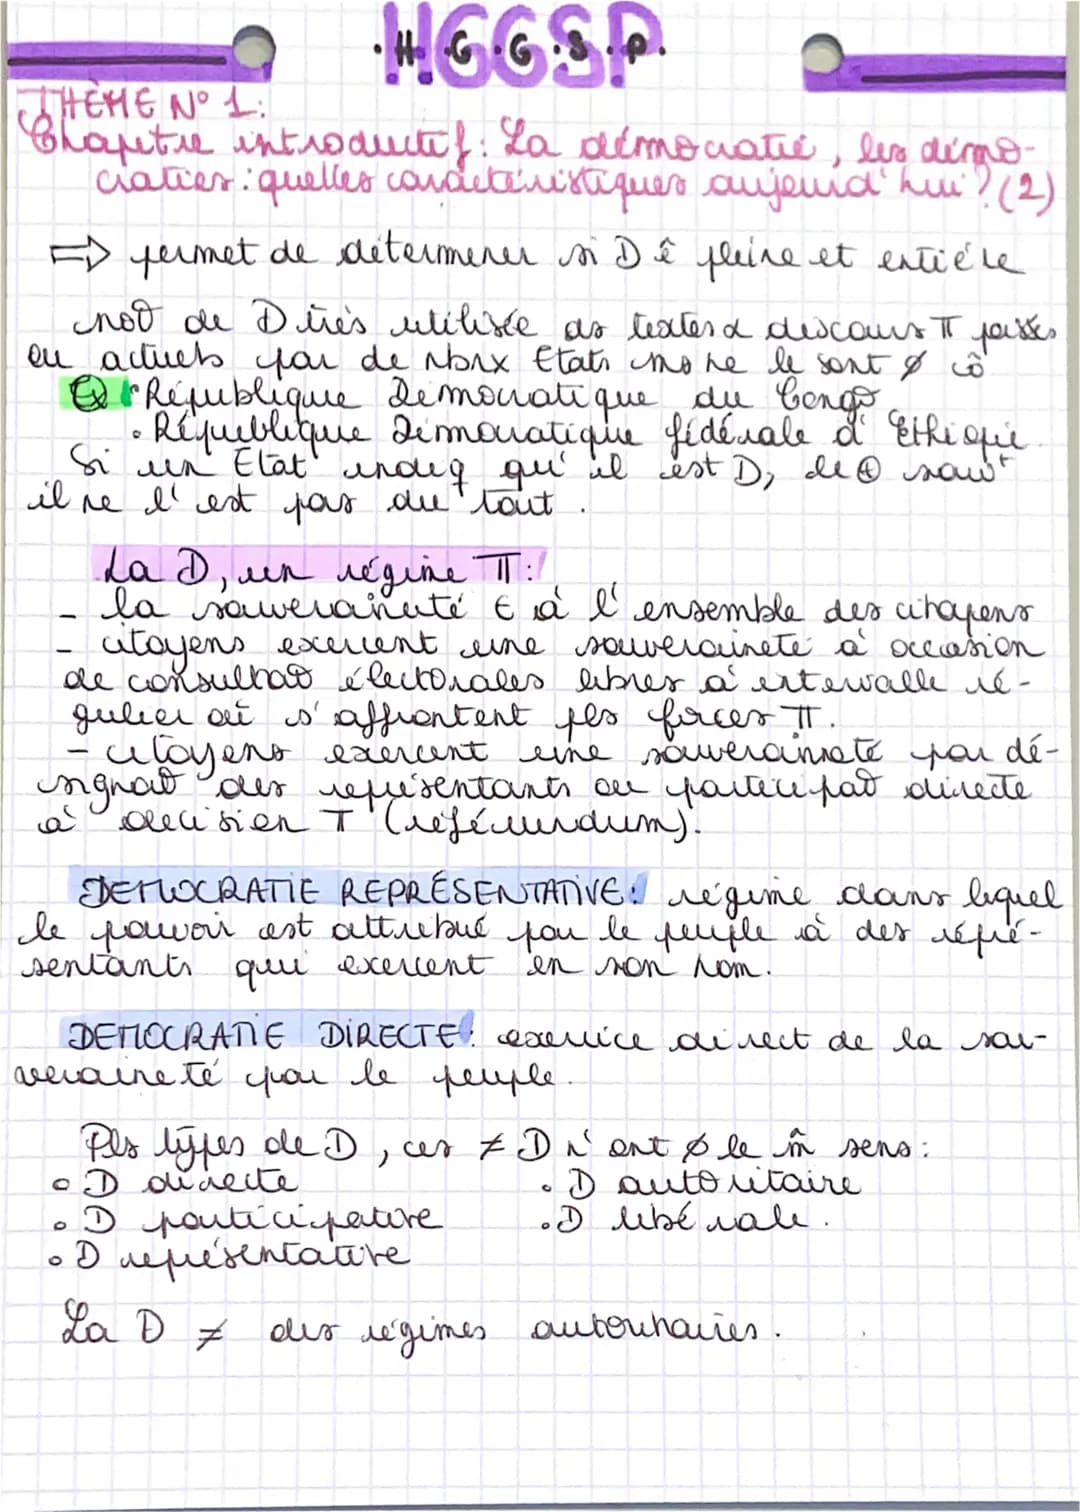 H.G.G.S.P.
THÈME N° 1:
Chapitre introductif: La démocratie, les démo-
craties: quelles caractéristiques aujourd'hui? (2)
=> permet de déterminer si D ê pleine et entière
not° de D très utilisée ds textes & discours π passés
ou actuels par de nbrx Etats ne le sont ∅ cô
Ex • République Démocratique du Congo
• République Démocratique fédérale d'Ethiopie
Si un Etat indiq qu'il est D, le ⊕ souvt
il ne l'est pas du tout.
La D, un régime π:
- la souveraineté ∈ à l'ensemble des citoyens
- citoyens exercent une souveraineté à occasion
de consultat° électorales libres à intervalle ré-
gulier où s'affrontent pls forces π.
- citoyens exercent une souveraineté par dé-
signat° des représentants ou participat° directe
à decision π (référundum).
DEMOCRATIE REPRÉSENTATIVE: régime dans lequel
le pouvoir est attribué par le peuple à des repré-
sentants qui exercent en son nom.
DEMOCRATIE DIRECTE: exercice direct de la sou-
veraineté par le peuple.
Pls types de D, ces ≠ D n'ont ∅ le m̂ sens:
• D directe
• D autoritaire
• D participative
• D libérale.
• D représentative
La D ≠ des régimes autoritaires.